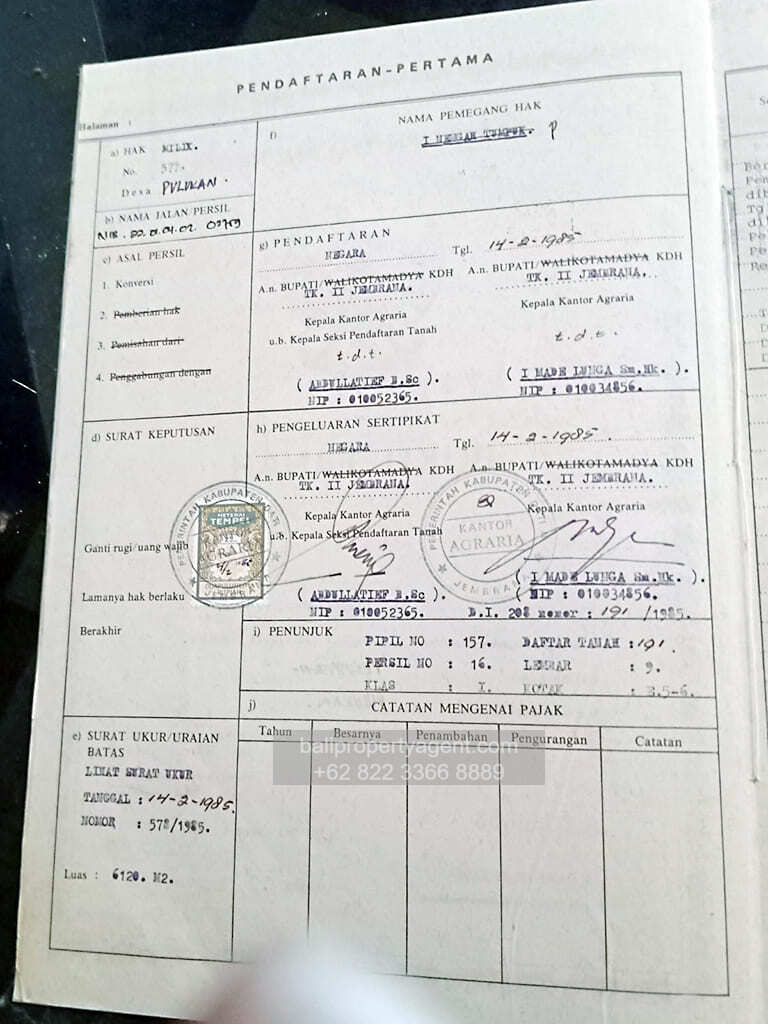 PENDAFTARAN-PERTAMA
Halaman :
a) HAK MILIK.
No. 577.
Desa PULUKAN.
b) NAMA JALAN/PERSIL
NIB. 22.01.04.02.
c) ASAL PERSIL
1. Konversi
2. Pemberian hak
3. Pemisahan dari
4. Penggabungan dengan
d) SURAT KEPUTUSAN
Ganti rugi/uang wajib
Lamanya hak berlaku
Berakhir
e) SURAT UKUR/URAIAN
BATAS
LIHAT SURAT UKUR
TANGGAL : 14-2-1985.
NOMOR : 578/1985.
Luas : 6120. M2.
f) NAMA PEMEGANG HAK
I NENGAH TUMPUK.
g) PENDAFTARAN
NEGARA Tgl. 14-2-1985
A.n. BUPATI/WALIKOTAMADYA KDH
TK. II JEMBRANA.
Kepala Kantor Agraria
u.b. Kepala Seksi Pendaftaran Tanah
t.d.t.
( ABDULLATIEF B.Sc ).
NIP : 010052365.
A.n. BUPATI/WALIKOTAMADYA KDH
TK. II JEMBRANA.
Kepala Kantor Agraria
t.d.t.
( I MADE LUNGA Sm.Hk. ).
NIP : 010034856.
h) PENGELUARAN SERTIPIKAT
NEGARA Tgl. 14-2-1985
A.n. BUPATI/WALIKOTAMADYA KDH
TK. II JEMBRANA.
Kepala Kantor Agraria
u.b. Kepala Seksi Pendaftaran Tanah
( ABDULLATIEF B.Sc ).
NIP : 010052365.
A.n. BUPATI/WALIKOTAMADYA KDH
TK. II JEMBRANA.
Kepala Kantor Agraria
( I MADE LUNGA Sm.Hk. ).
NIP : 010034856.
D.I. 208 nomor : 191 /1985.
TEMPEL
KANTOR
AGRARIA
JEMBRANA
i) PENUNJUK
PIPIL NO : 157. DAFTAR TANAH : 191.
PERSIL NO : 16. LEMBAR : 9.
KLAS : I. KOTAK : E.5-6.
j) CATATAN MENGENAI PAJAK
Tahun Besarnya Penambahan Pengurangan Catatan
balipropertyagent.com
+62 822 3366 8889